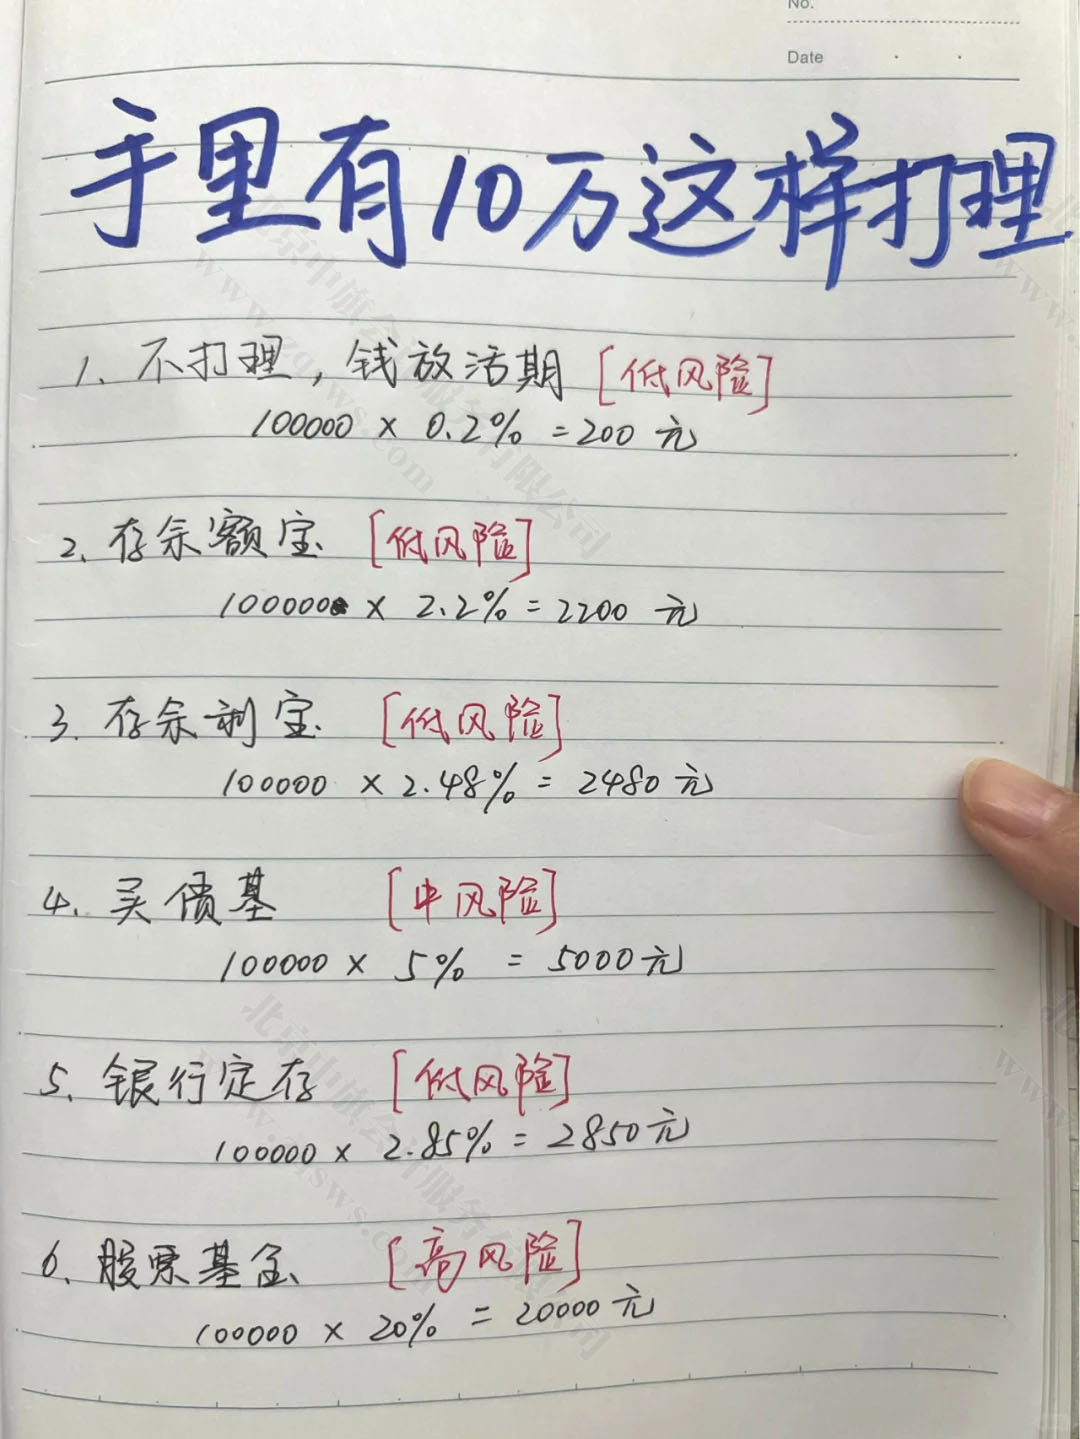 No.
Date
手里有10万这样打理
1、不打理，钱放活期 [低风险]
100000 × 0.2% = 200 元
2、存余额宝 [低风险]
100000 × 2.2% = 2200 元
3、存余利宝 [低风险]
100000 × 2.48% = 2480 元
4、买债基 [中风险]
100000 × 5% = 5000元
5、银行定存 [低风险]
100000 × 2.85% = 2850元
6、股票基金 [高风险]
100000 × 20% = 20000 元
北京中旗会计服务有限公司
www.zqsws.com
北京中旗会计服务有限公司
www.zqsws.com